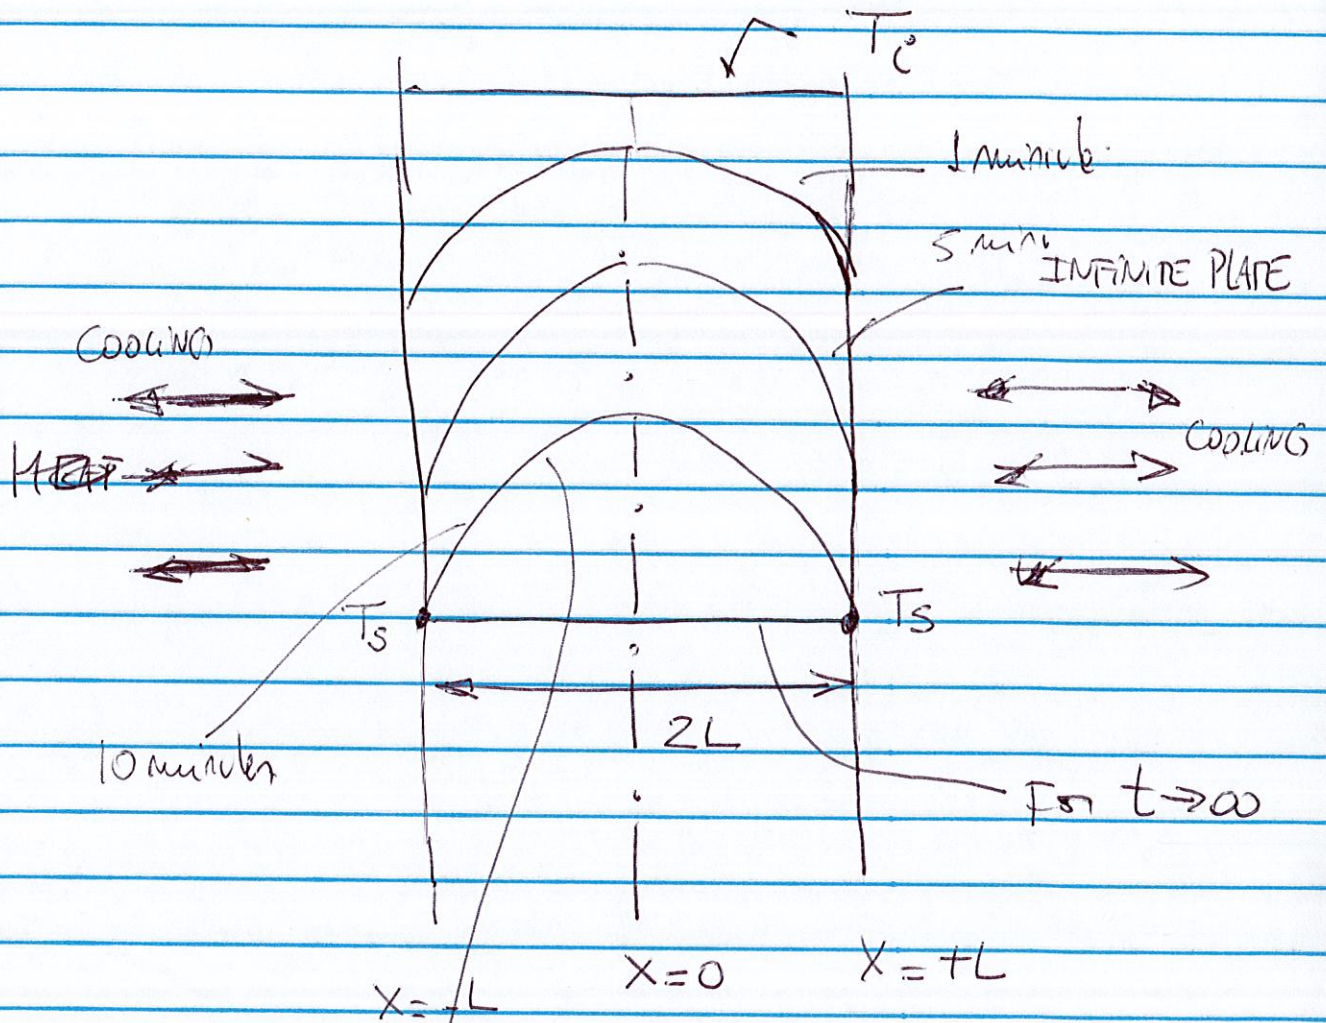 Ti
1 minute
5 min
INFINITE PLATE
COOLING
COOLING
HEAT
Ts
Ts
2L
10 minutes
For t→∞
X=0
X=+L
X=-L